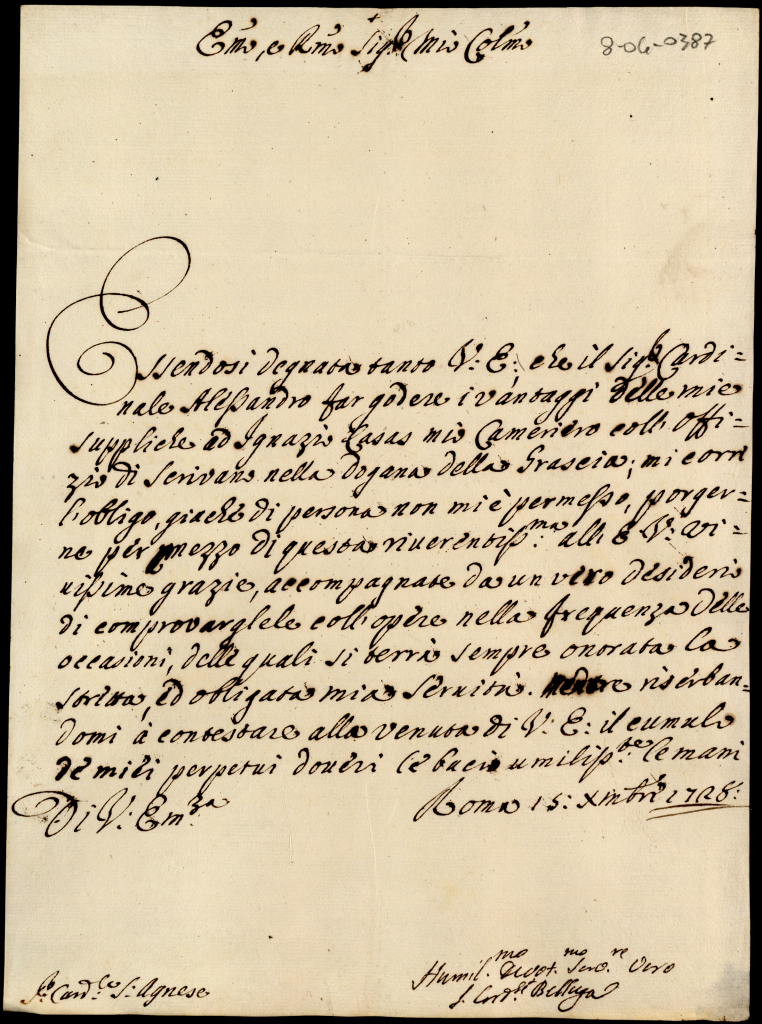 Emo, e Rmo Sigr Mio Colmo
8-06-0387
Essendosi degnata tanto V: E: che il Sigr Cardi=
nale Alessandro far godere i vantaggi delle mie
suppliche ad Ignazio Casas mio Cameriero coll' Offi=
zio di Scrivano nella dogana della Grascia; mi corre
l'obligo, giache di persona non mi è permesso, porger=
ne per mezzo di questa riverentiss:ma all' E: V: vi=
vissime grazie, accompagnate da un vero desiderio
di comprovarglele coll' opere nella frequenza delle
occasioni, delle quali si terrà sempre onorata la
stretta, ed obligata mia servitù. Mentre riserban=
domi à contestare alla venuta di V: E: il cumulo
de miei perpetui doveri le bacio umiliss:te le mani
Di V: Emza
Roma 15: Xmbre 1728:
Humil.mo Devot.mo Serv.re Vero
L. Cardl Belluga
Sr Cardle S: Agnese